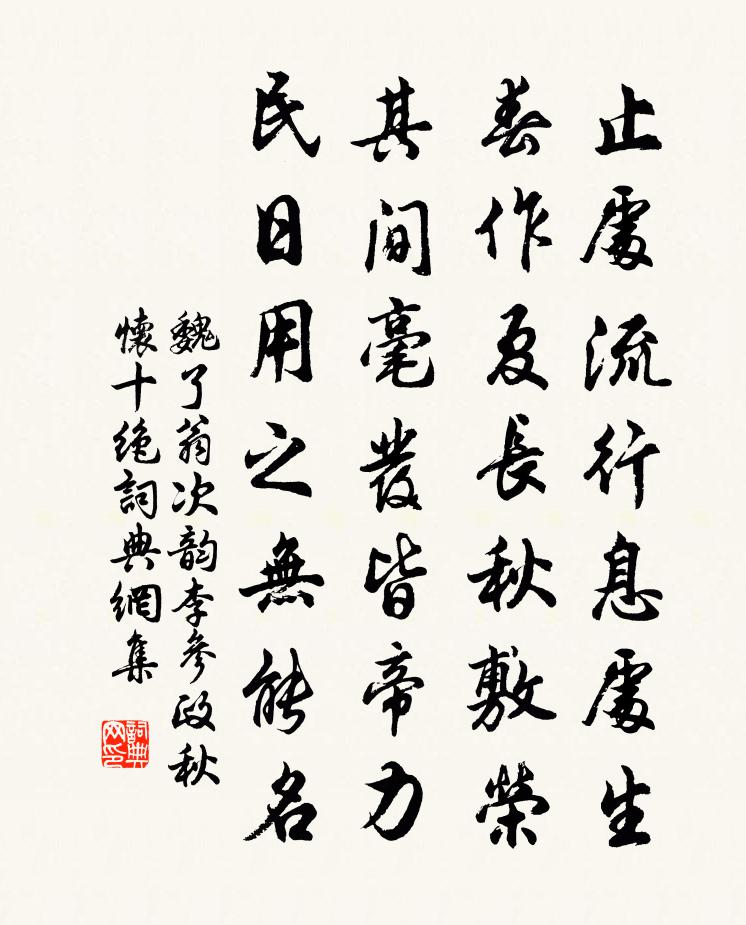 止處流行息處生
春作夏長秋敷榮
其間毫發皆帝力
民日用之無能名
魏了翁次韵李參政秋
懷十絶詞典網集
詞典
网印